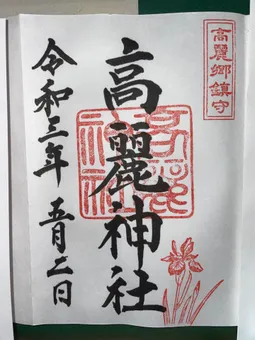 高麗郷鎮守
高麗神社
高麗神社
令和三年 五月二日